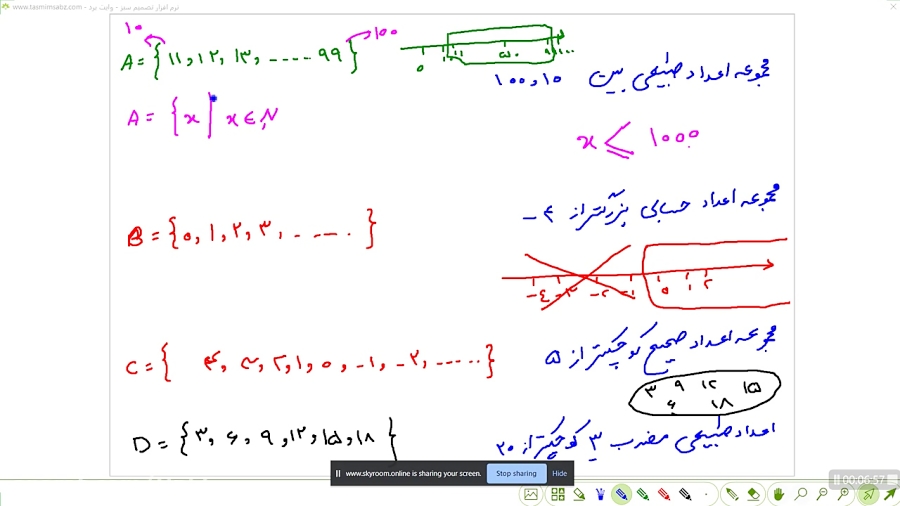 نرم افزار تصمیم سبز - وایت برد - www.tasmimsabz.com
۱۰ ۱۰۰
A = { ۱۱ , ۱۲ , ۱۳ , ..... ۹۹ }
مجموعه اعداد طبیعی بین ۱۰ و ۱۰۰
A = { x | x ∈ N
x ≤ ۱۰۰۰
مجموعه اعداد حسابی بزرگتر از ۴-
B = { ۰ , ۱ , ۲ , ۳ , ...... }
-۴ -۳ -۲ -۱ ۰ ۱ ۲
مجموعه اعداد صحیح کوچکتر از ۵
C = { ۴ , ۳ , ۲ , ۱ , ۰ , -۱ , -۲ , ...... }
۳ ۹ ۱۲ ۱۵
۶ ۱۸
اعداد طبیعی مضرب ۳ کوچکتر از ۲۰
D = { ۳ , ۶ , ۹ , ۱۲ , ۱۵ , ۱۸ }
www.skyroom.online is sharing your screen. Stop sharing Hide
00:06:57